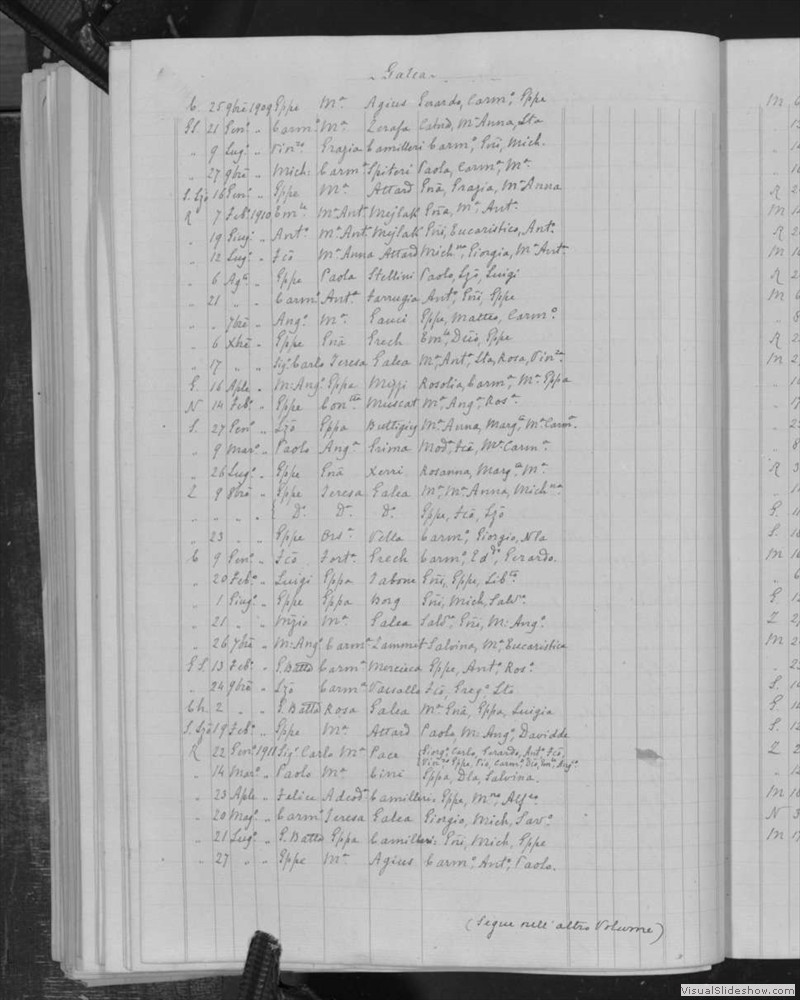 - Galea -
C. 25 9bre 1909 Gppe Ma Agius Gerardo, Carmo, Gppe
GS. 21 Geno „ Carmo Ma Zerafa Catod, Ma Anna, Sta
„ 9 Lugo „ Vinzo Grazia Camilleri Carmo, Gni, Mich.
„ 27 9bre „ Mich: Carma Spiteri Paola, Carma, Ma
S. Lzo 16 Geno „ Gppe Ma Attard Gna, Grazia, Ma Anna
R 7 Febo 1910 Emle Ma Anta Mejlak Gna, Ma, Anta
„ 19 Giugo „ Anto Ma Anta Mejlak Gni, Eucaristico, Anto
„ 12 Lugo „ Fco Ma Anna Attard Michna, Giorgia, Ma Anta
„ 6 Ago „ Gppe Paola Stellini Paolo, Lzo, Luigi
„ 21 „ „ Carmo Anta Farrugia Anto, Gni, Gppe
„ „ 7bre „ Ango Ma Gauci Gppe, Matteo, Carmo
„ 6 Xbre „ Gppe Gna Grech Emle, Gppe
„ 17 „ „ Sigr Carlo Teresa Galea Ma, Anta, Sta, Rosa, Vinza
G. 16 Aple „ M: Ango Gppa Mizzi Rosolia, Carma, Ma Gppa
N 14 Febo „ Gppe Contta Muscat Ma, Anga, Rosa
S. 27 Geno „ Lzo Gppa Buttigieg Ma Anna, Marga, Ma Carma
„ 9 Maro „ Paolo Anga Grima Fco, Ma Carma
„ 26 Lugo „ Gppe Gna Xerri Rosanna, Marga, Ma
Z 9 8bre „ Gppe Teresa Galea Ma, Ma Anna, Michna
„ „ „ „ { Do Do Do Gppe, Fco, Lzo
„ 23 „ „ Gppe Orsa Vella Carmo, Giorgio, Nla
C 9 Geno „ Fco Forta Grech Carmo, Edo, Gerardo.
„ 20 Febo „ Luigi Gppa Tabone Gni, Gppe, Liba
„ 1 Giugo „ Gppe Gppa Borg Gni, Mich, Salvo
„ 21 „ „ Ma Galea Salvo, Gni, M: Ango
„ 26 7bre „ M: Ango Carma Zammit Salvina, Ma, Eucaristica
GS. 13 Febo „ G. Batta Carma Mercieca Gppe, Anto, Roso
„ 24 9bre „ Lzo Carma Vassallo Fco, Grego, Sto
Ch. 2 „ „ G. Batta Rosa Galea Ma Gna, Gppa, Luigia
S. Lzo 19 Febo „ Gppe Ma Attard Paolo, M: Ango, Davidde
R 22 Geno 1911 Sigr Carlo Ma Pace { Giorgo, Carlo, Gerardo, Anto, Fco,
Vinzo, Gppe, Pio, Carmo, Emle, Ango
„ 14 Maro „ Paolo Ma Cini Gppa, Dla, Salvina.
„ 23 Aple „ Felice Adeoda Camilleri Gppe, Alfeo
„ 20 Mago „ Carmo Teresa Galea Giorgio, Mich, Savo
„ 21 Lugo „ G. Batta Gppa Camilleri Gni, Mich, Gppe
„ 27 „ „ Gppe Ma Agius Carmo, Anto, Paolo.
(Segue nell'altro Volume)
VisualSlideshow.com